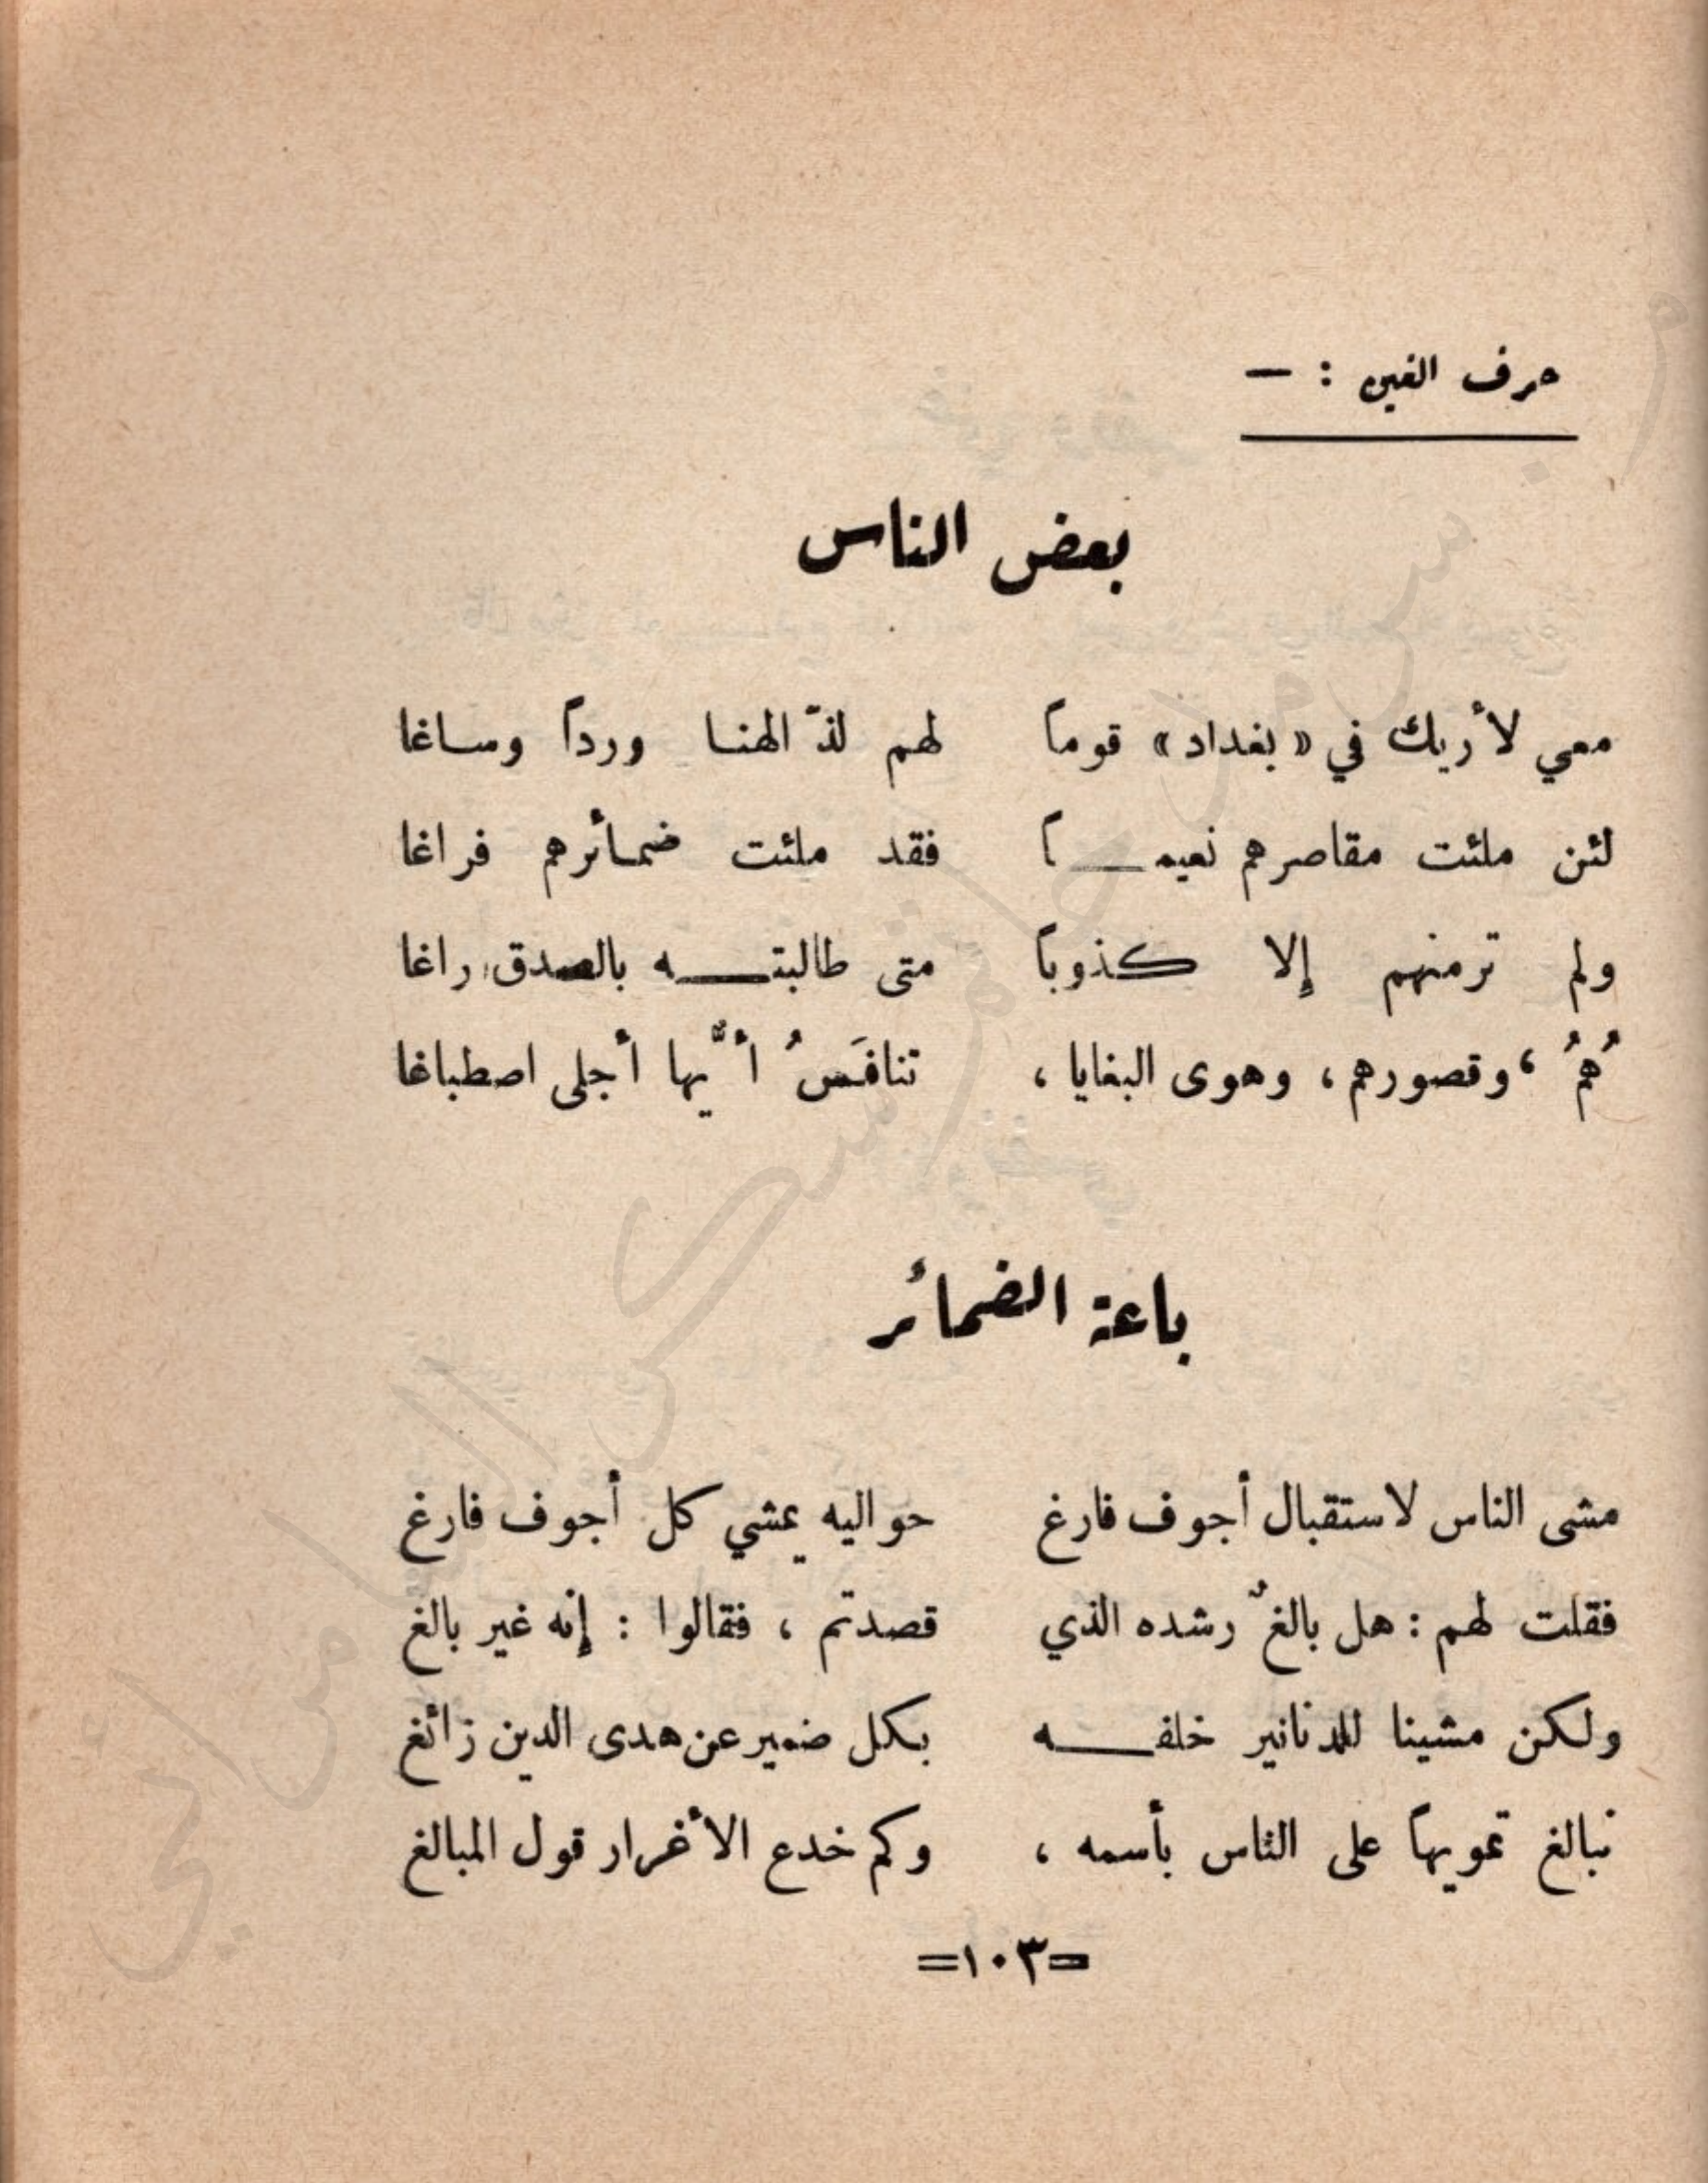 حرف الغين : —
بعض الناس
معي لأريك في «بغداد» قوماً لهم لذّ الهنا ورداً وساغا
لئن ملئت مقاصرهم نعيمـــاً فقد ملئت ضمائرهم فراغا
ولم ترمنهم إلا كذوباً متى طالبتـــه بالصدق راغا
هُمُ ، وقصورهم ، وهوى البغايا ، تنافَسُ أيُّها أجلى اصطباغا
باعة الضمائر
مشى الناس لاستقبال أجوف فارغ حواليه يمشي كل أجوف فارغ
فقلت لهم : هل بالغٌ رشده الذي قصدتم ، فقالوا : إنه غير بالغ
ولكن مشينا للدنانير خلفـــه بكل ضمير عن هدى الدين زائغ
نبالغ تمويهاً على الناس بأسمه ، وكم خدع الأغرار قول المبالغ
=١٠٣=
السامرائي